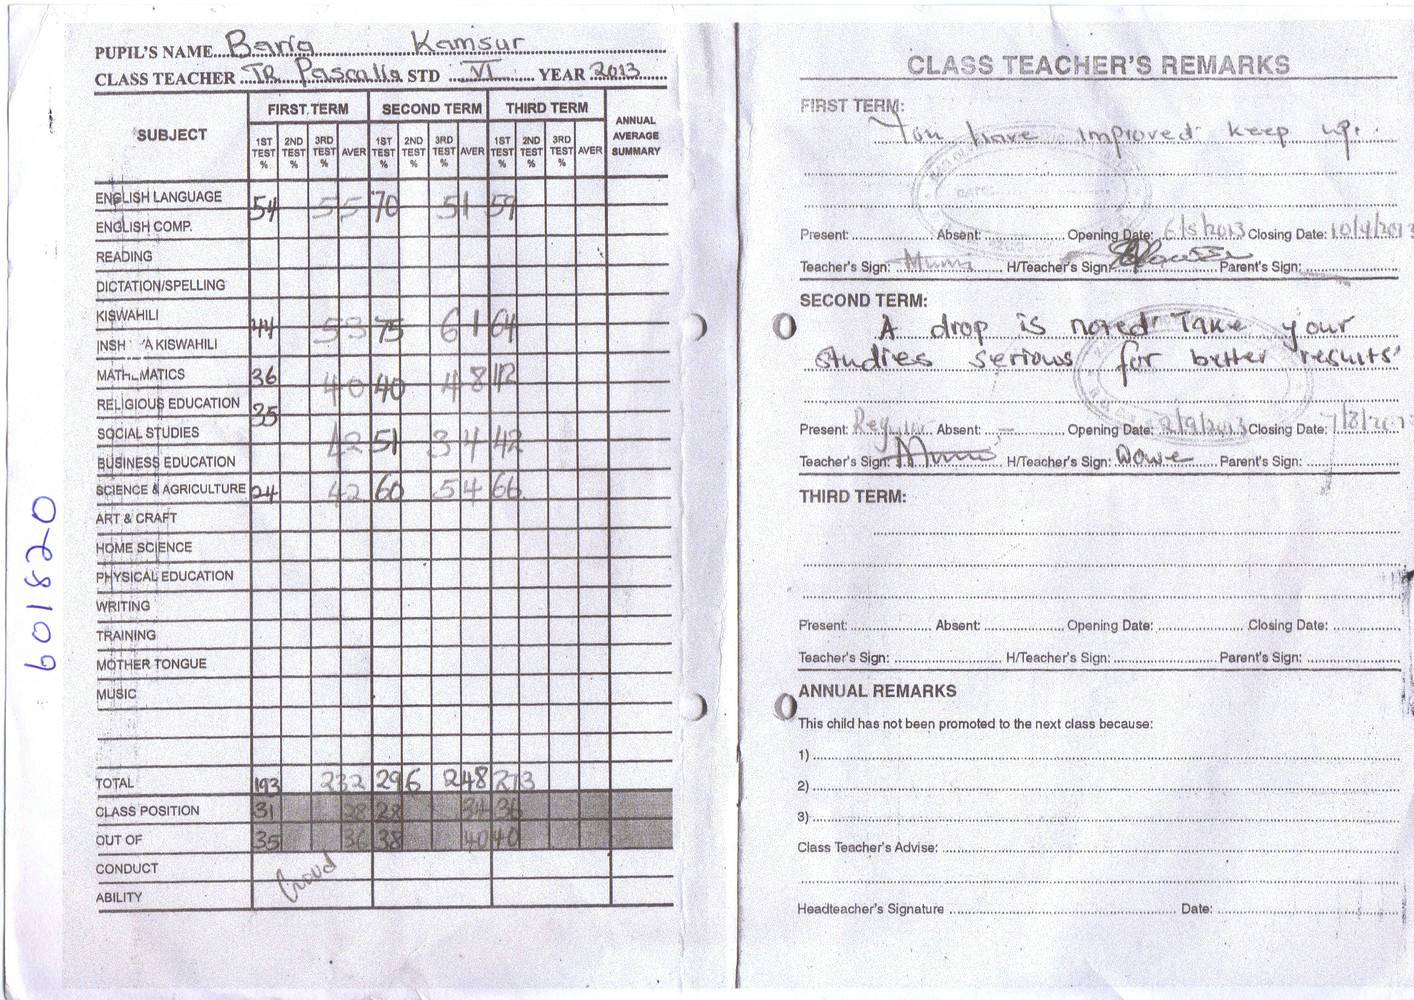 PUPIL'S NAME Baria Kamsur
CLASS TEACHER TR. Pascalia STD VI YEAR 2013
SUBJECT FIRST TERM SECOND TERM THIRD TERM ANNUAL AVERAGE SUMMARY
1ST TEST % 2ND TEST % 3RD TEST % AVER 1ST TEST % 2ND TEST % 3RD TEST % AVER 1ST TEST % 2ND TEST % 3RD TEST % AVER
ENGLISH LANGUAGE 54 55 70 51 59
ENGLISH COMP.
READING
DICTATION/SPELLING
KISWAHILI 44 53 75 61 64
INSH 'A KISWAHILI
MATHEMATICS 36 40 40 48 42
RELIGIOUS EDUCATION 35
SOCIAL STUDIES 42 51 34 42
BUSINESS EDUCATION
SCIENCE & AGRICULTURE 24 42 60 54 66
ART & CRAFT
HOME SCIENCE
PHYSICAL EDUCATION
WRITING
TRAINING
MOTHER TONGUE
MUSIC
TOTAL 193 232 296 248 273
CLASS POSITION 31 28 28 34 36
OUT OF 35 36 38 40 40
CONDUCT Good
ABILITY
601820
CLASS TEACHER'S REMARKS
FIRST TERM:
You have improved keep up.
Present: Absent: Opening Date: 6/5/2013 Closing Date: 10/4/2013
Teacher's Sign: Mumi H/Teacher's Sign: Parent's Sign:
SECOND TERM:
A drop is noted Take your
studies serious for better results'
Present: Absent: – Opening Date: 2/9/2013 Closing Date: 7/8/201
Teacher's Sign: H/Teacher's Sign: Parent's Sign:
THIRD TERM:
Present: Absent: Opening Date: Closing Date:
Teacher's Sign: H/Teacher's Sign: Parent's Sign:
ANNUAL REMARKS
This child has not been promoted to the next class because:
1)
2)
3)
Class Teacher's Advise:
Headteacher's Signature Date: